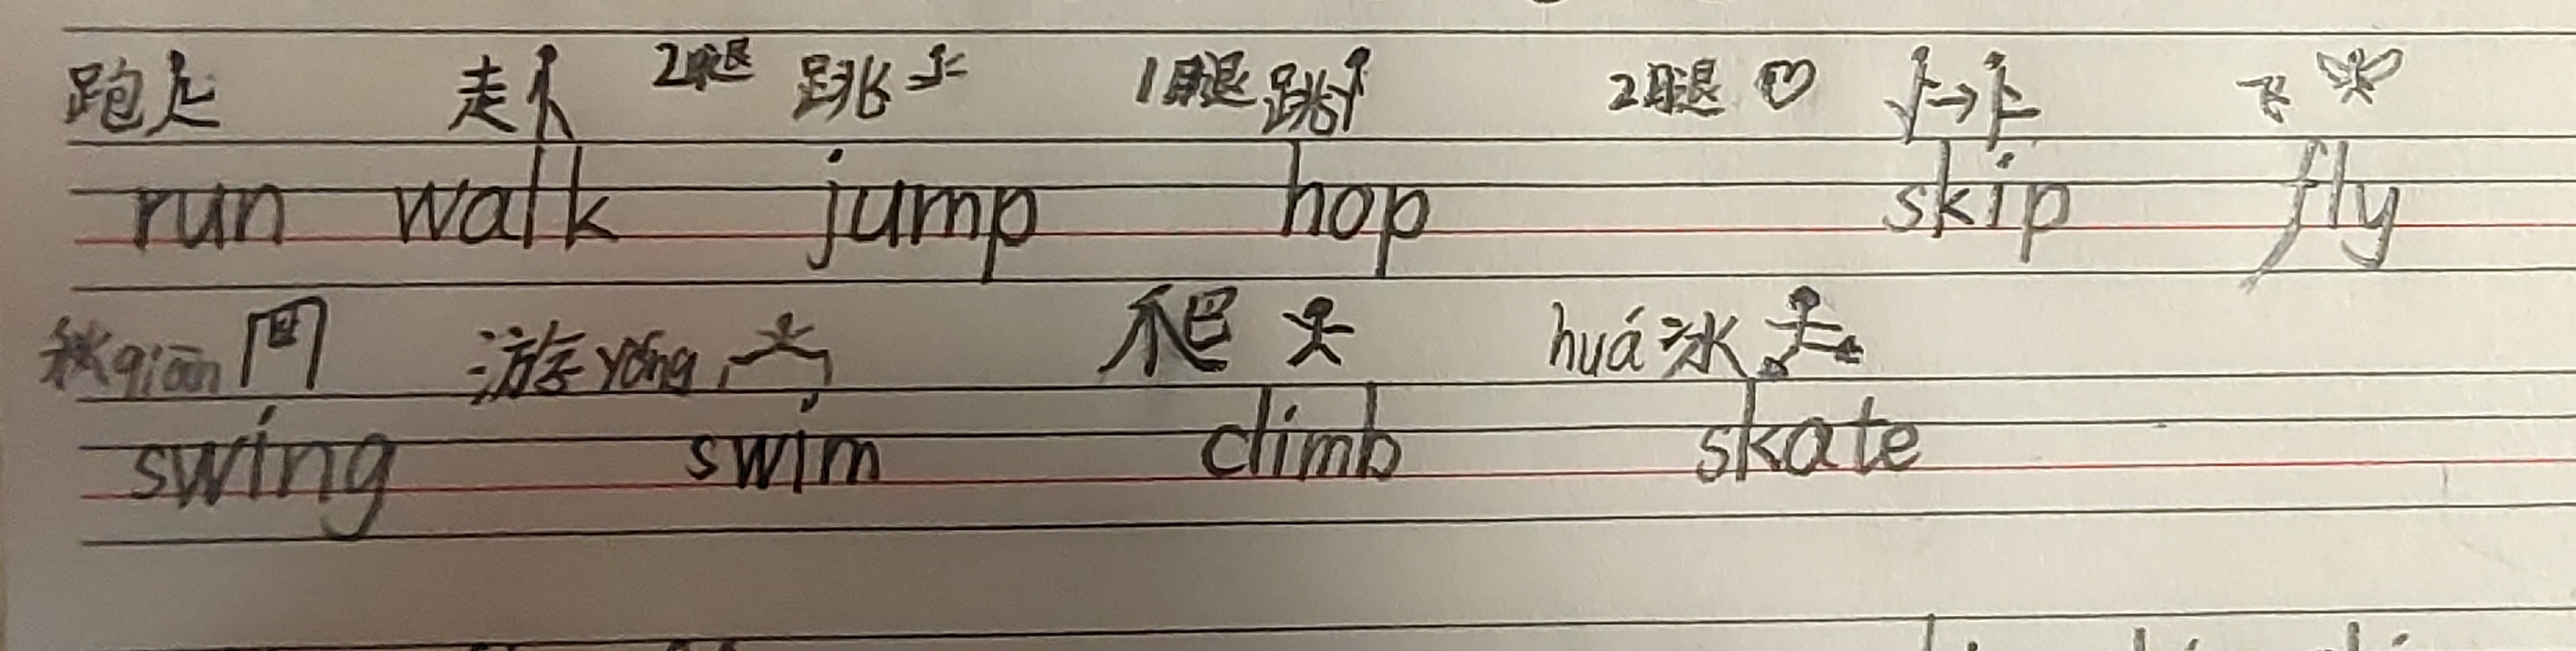 跑 走 2腿 跳 1腿跳 2腿 飞
run walk jump hop skip fly
秋qiān 游yǒng 爬 huá冰
swing swim climb skate